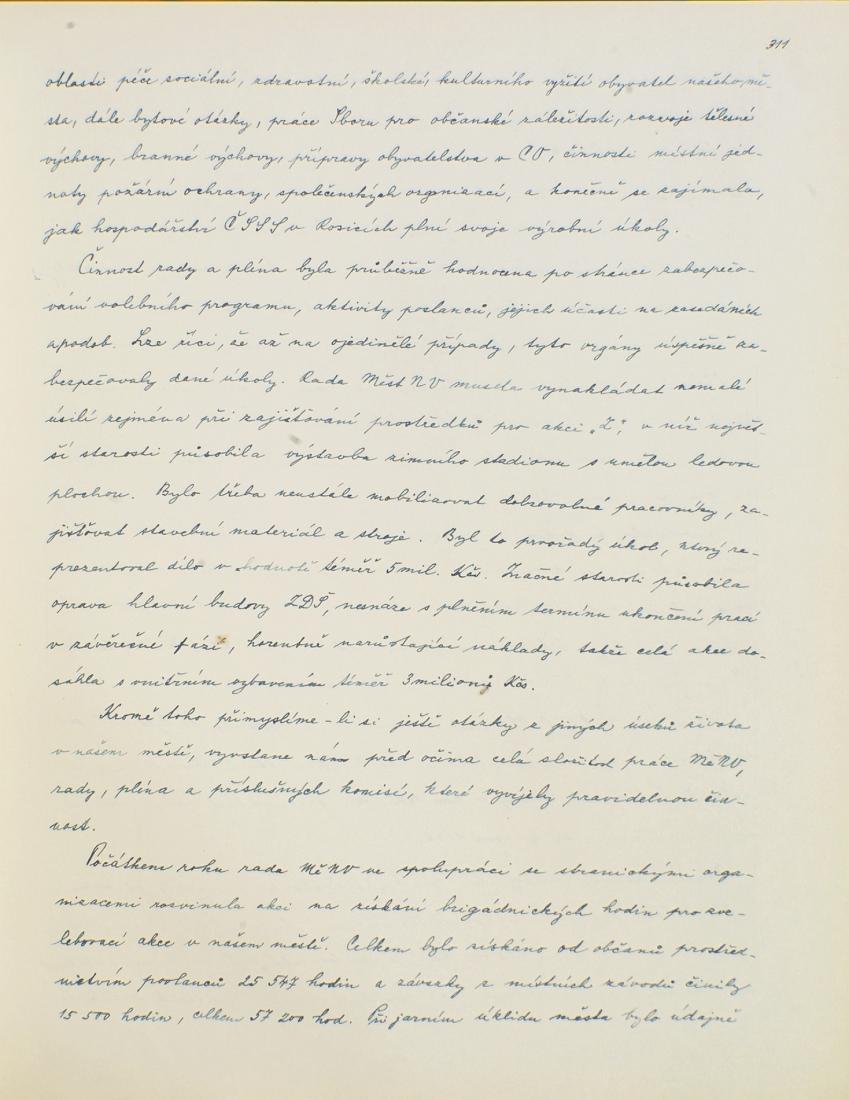 311
oblasti péče sociální, zdravotní, školské, kulturního vyžití obyvatel našeho mě-
sta, dále bytové otázky, práce Sboru pro občanské záležitosti, rozvoje tělesné
výchovy, branné výchovy, přípravy obyvatelstva v CO, činnosti místní jed-
noty požární ochrany, společenských organizací, a konečně se zajímala,
jak hospodářství ČSSS v Rosicích plní svoje výrobní úkoly.
Činnost rady a pléna byla průběžně hodnocena po stránce zabezpečo-
vání volebního programu, aktivity poslanců, jejich účasti na zasedáních
apodob. Lze říci, že až na ojedinělé případy, tyto orgány úspěšně za-
bezpečovaly dané úkoly. Rada Měst NV musela vynakládat nemalé
úsilí zejména při zajišťování prostředků pro akci „Z", v níž největ-
ší starosti působila výstavba zimního stadionu s umělou ledovou
plochou. Bylo třeba neustále mobilizovat dobrovolné pracovníky, za-
jišťovat stavební materiál a stroje. Byl to prvořadý úkol, který re-
prezentoval dílo v hodnotě téměř 5 mil. Kčs. Značné starosti působila
oprava hlavní budovy ZDŠ, nesnáze s plněním termínu ukončení prací
v závěrečné fázi, horentně narůstající náklady, takže celá akce do-
sáhla s vnitřním vybavením téměř 3 milionů Kčs.
Kromě toho přimyslíme-li si ještě otázky z jiných úseků života
v našem městě, vyvstane nám před očima celá složitost práce MěNV,
rady, pléna a příslušných komisí, které vyvíjely pravidelnou čin-
nost.
Počátkem roku rada MěNV ve spolupráci se stranickými orga-
nizacemi rozvinula akci na získání brigádnických hodin pro zve-
lebovací akce v našem městě. Celkem bylo získáno od občanů prostřed-
nictvím poslanců 25 547 hodin a závazky z místních závodů činily
15 500 hodin, celkem 57 200 hod. Při jarním úklidu města bylo údajně